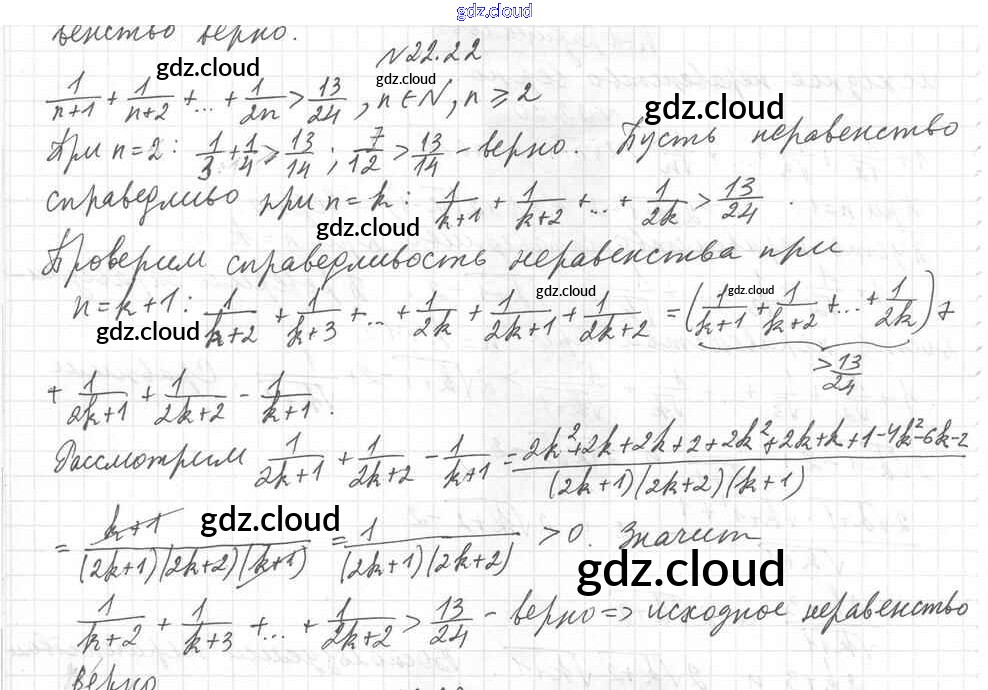 gdz.cloud
венство верно.
№22.22
gdz.cloud
gdz.cloud
gdz.cloud
1/(n+1) + 1/(n+2) + ... + 1/(2n) > 13/24, n∈N, n ⩾ 2
При n=2: 1/3 + 1/4 > 13/14; 7/12 > 13/14 – верно. Пусть неравенство
справедливо при n=k: 1/(k+1) + 1/(k+2) + ... + 1/(2k) > 13/24.
gdz.cloud
Проверим справедливость неравенства при
gdz.cloud
gdz.cloud
gdz.cloud
n=k+1: 1/(k+2) + 1/(k+3) + ... + 1/(2k) + 1/(2k+1) + 1/(2k+2) = (1/(k+1) + 1/(k+2) + ... + 1/(2k)) +
> 13/24
+ 1/(2k+1) + 1/(2k+2) - 1/(k+1).
Рассмотрим 1/(2k+1) + 1/(2k+2) - 1/(k+1) = (2k²+2k+2k+2+2k²+2k+k+1-4k²-6k-2)/((2k+1)(2k+2)(k+1))
gdz.cloud
= (k+1)/((2k+1)(2k+2)(k+1)) = 1/((2k+1)(2k+2)) > 0. Значит
gdz.cloud
1/(k+2) + 1/(k+3) + ... + 1/(2k+2) > 13/24 – верно => исходное неравенство
верно